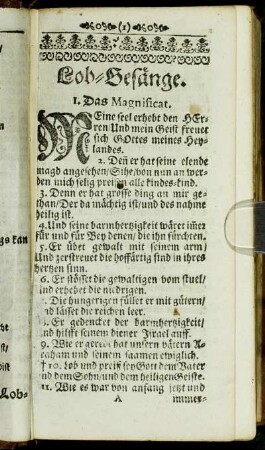 (1)
Lob-Gesänge.
1. Das Magnificat.
MEine seel erhebt den HEr-
ren Und mein Geist freuet
sich GOttes meines Hey-
landes.
2. Den er hat seine elende
magd angesehen/Sihe/von nun an wer-
den mich selig preisen alle kindes-kind.
3. Denn er hat grosse ding an mir ge-
than/Der da mächtig ist/und des nahme
heilig ist.
4. Und seine barmhertzigkeit wäret im̃er
für und für Bey denen/die ihn fürchten.
5. Er übet gewalt mit seinem arm/
Und zerstreuet die hoffärtig sind in ihres
hertzen sinn.
6. Er stösset die gewaltigen vom stuel/
und erhebet die nidrigen.
Die hungerigen füllet er mit gütern/
nd lässet die reichen leer.
Er gedencket der barmhertzigkeit/
nd hilfft seinem diener Israel auff.
9. Wie er geredt hat unsern vätern A-
braham und seinem saamen ewiglich.
10. Lob und preiß sey Gott dem Vater
und dem Sohn/und dem heiligen Geiste.
11. Wie es war von anfang jetzt und
A immer-
gs kan
Lob-